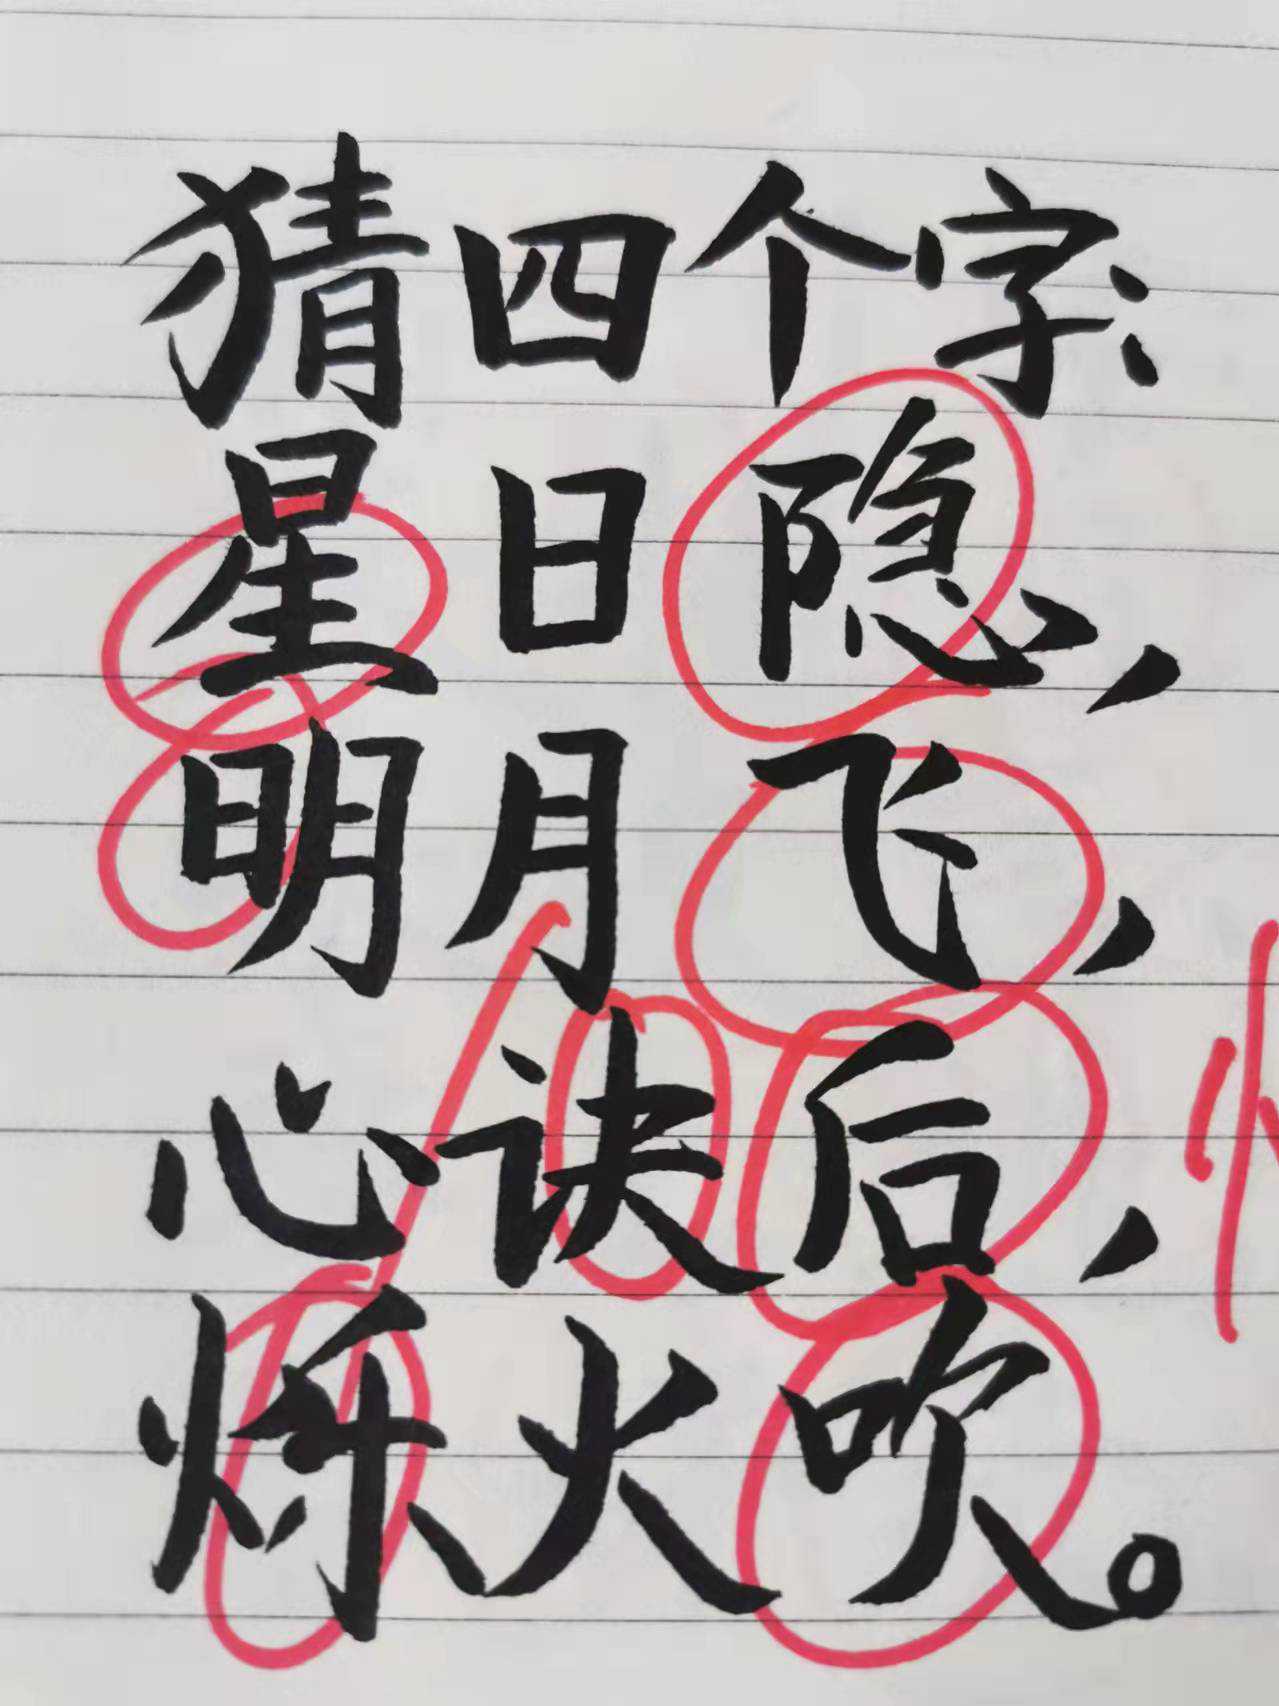 猜四个字：
星日隐，
明月飞，
心诀后，
烁火吹。